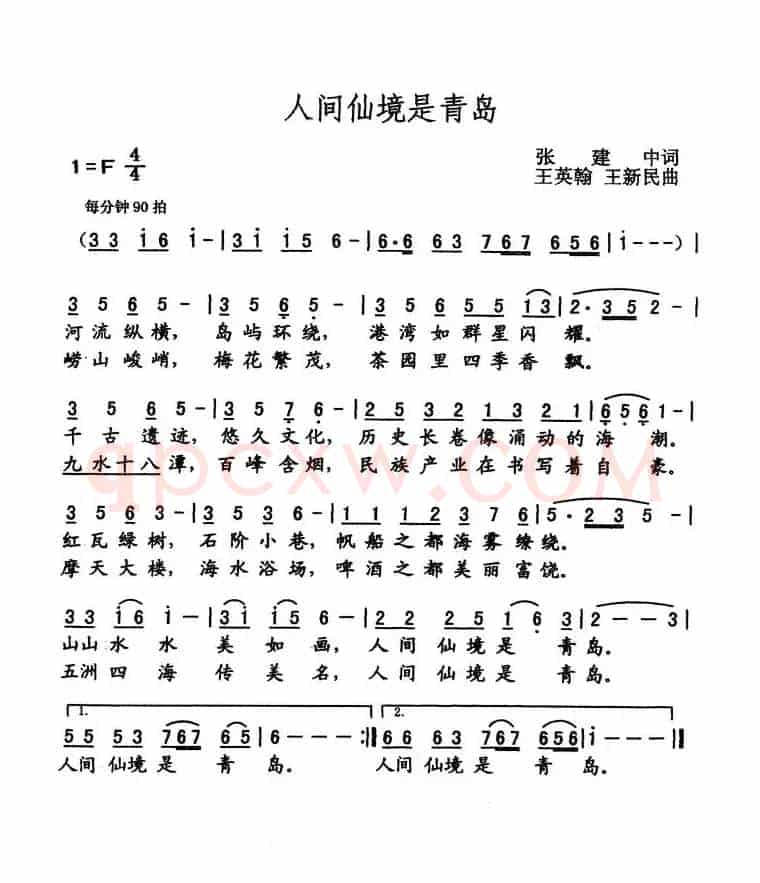 人间仙境是青岛
1=F 4/4
张 建 中词
王英翰 王新民曲
每分钟90拍
(3 3 i 6 i - | 3 i i 5 6 - | 6· 6 6 3 7 6 7 6 5 6 | i - - -) |
3 5 6 5 - | 3 5 6 5 - | 3 5 6 5 5 1 3 | 2· 3 5 2 - |
河流纵横， 岛屿环绕， 港湾如群星闪 耀。
崂山峻峭， 梅花繁茂， 茶园里四季香 飘。
3 5 6 5 - | 3 5 7 6 - | 2 5 3 2 1 3 2 1 | 6 5 6 1 - |
千古遗迹， 悠久文化， 历史长卷像涌动的海 潮。
九水十八潭， 百峰含烟， 民族产业在书写着自 豪。
3 5 6 3 - | 3 5 3 6 - | 1 1 1 2 3 7 6 | 5· 2 3 5 - |
红瓦绿树， 石阶小巷， 帆船之都海雾缭绕。
摩天大楼， 海水浴场， 啤酒之都美丽富饶。
3 3 i 6 i - | 3 i i 5 6 - | 2 2 2 5 1 6 3 | 2 - - 3 |
山山水 水 美 如 画， 人间 仙境是 青岛。
五洲四 海 传 美 名， 人间 仙境是 青岛。
1. 2.
5 5 5 3 7 6 7 6 5 | 6 - - - :‖ 6 6 6 3 7 6 7 6 5 6 | i - - - ‖
人间 仙境 是 青 岛。 人间 仙境 是 青 岛。
qpcxw.com